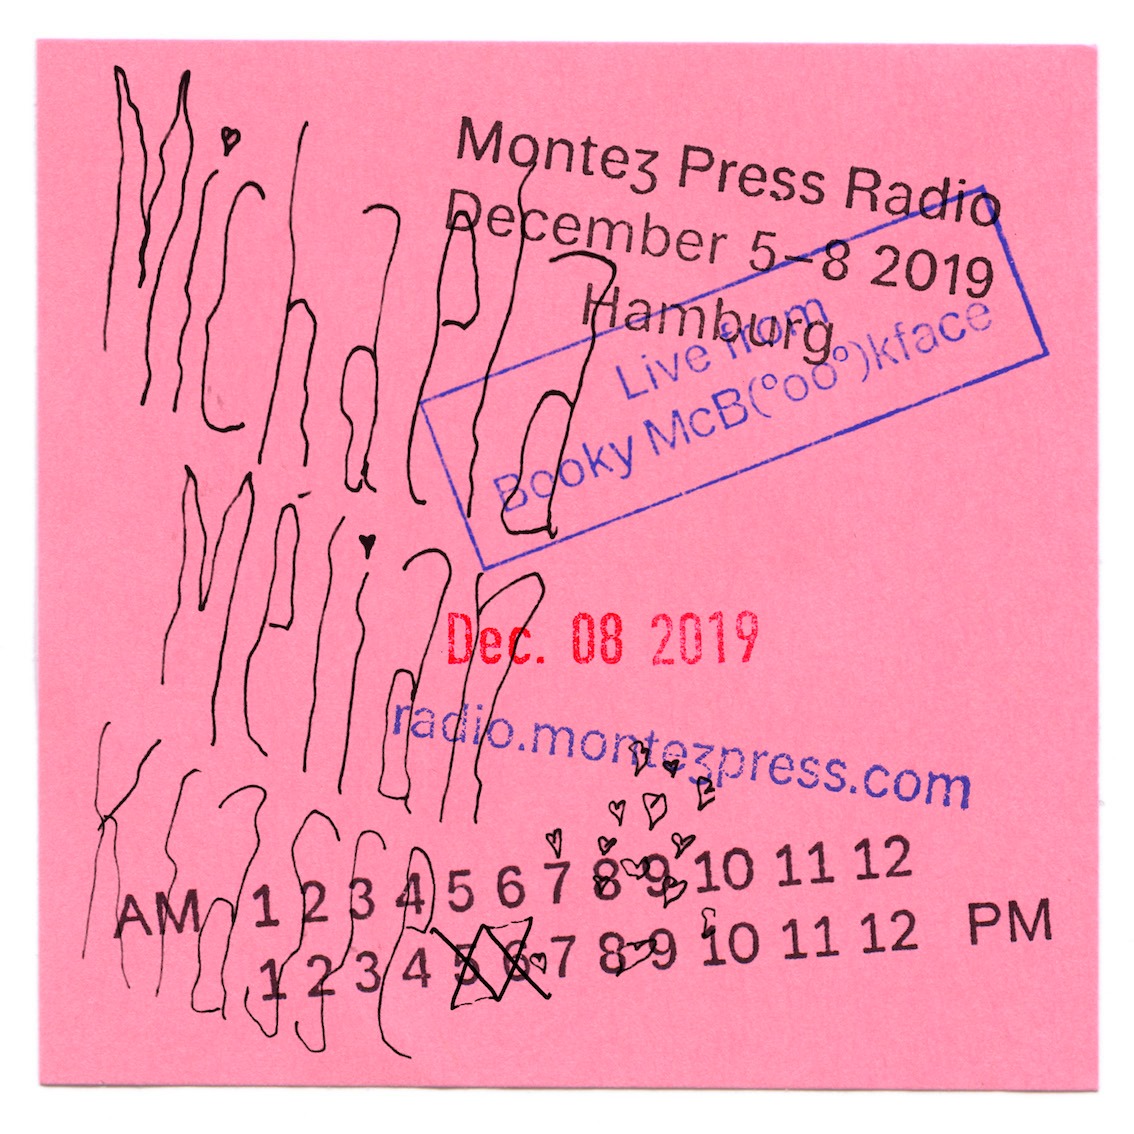 Michaela
Melian
Montez Press Radio
December 5–8 2019
Hamburg
Live from
Booky McB(°oo°)kface
Dec. 08 2019
radio.montezpress.com
AM 1 2 3 4 5 6 7 8 9 10 11 12
1 2 3 4 5 6 7 8 9 10 11 12 PM